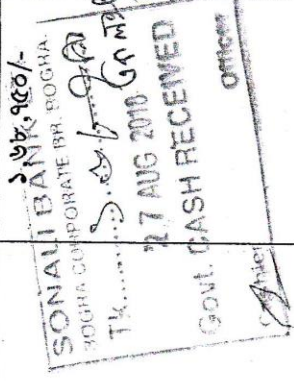 ১,৬৮,৭৫০/-
SONALI BANK
BOGRA CORPORATE BR. BOGRA.
Tk..........
27 AUG 2018
Govt. CASH RECEIVED
Cashier Officer